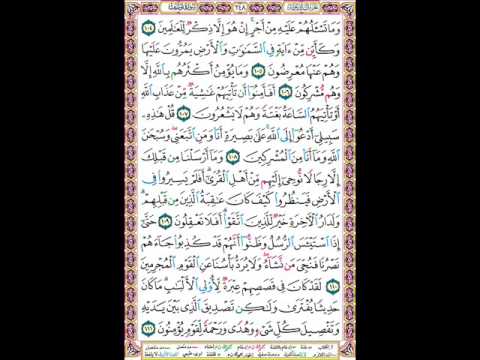 وَمَا تَسْـَٔلُهُمْ عَلَيْهِ مِنْ أَجْرٍ إِنْ هُوَ إِلَّا ذِكْرٌ لِّلْعَٰلَمِينَ ١٠٤
وَكَأَيِّن مِّنْ ءَايَةٍ فِى ٱلسَّمَٰوَٰتِ وَٱلْأَرْضِ يَمُرُّونَ عَلَيْهَا
وَهُمْ عَنْهَا مُعْرِضُونَ ١٠٥ وَمَا يُؤْمِنُ أَكْثَرُهُم بِٱللَّهِ إِلَّا
وَهُم مُّشْرِكُونَ ١٠٦ أَفَأَمِنُوٓا۟ أَن تَأْتِيَهُمْ غَٰشِيَةٌ مِّنْ عَذَابِ ٱللَّهِ
أَوْ تَأْتِيَهُمُ ٱلسَّاعَةُ بَغْتَةً وَهُمْ لَا يَشْعُرُونَ ١٠٧ قُلْ هَٰذِهِۦ
سَبِيلِىٓ أَدْعُوٓا۟ إِلَى ٱللَّهِ عَلَىٰ بَصِيرَةٍ أَنَا۠ وَمَنِ ٱتَّبَعَنِى وَسُبْحَٰنَ
ٱللَّهِ وَمَآ أَنَا۠ مِنَ ٱلْمُشْرِكِينَ ١٠٨ وَمَآ أَرْسَلْنَا مِن قَبْلِكَ
إِلَّا رِجَالًا نُّوحِىٓ إِلَيْهِم مِّنْ أَهْلِ ٱلْقُرَىٰٓ أَفَلَمْ يَسِيرُوا۟ فِى
ٱلْأَرْضِ فَيَنظُرُوا۟ كَيْفَ كَانَ عَٰقِبَةُ ٱلَّذِينَ مِن قَبْلِهِمْ
وَلَدَارُ ٱلْءَاخِرَةِ خَيْرٌ لِّلَّذِينَ ٱتَّقَوْا۟ أَفَلَا تَعْقِلُونَ ١٠٩ حَتَّىٰٓ
إِذَا ٱسْتَيْـَٔسَ ٱلرُّسُلُ وَظَنُّوٓا۟ أَنَّهُمْ قَدْ كُذِبُوا۟ جَآءَهُمْ
نَصْرُنَا فَنُجِّىَ مَن نَّشَآءُ وَلَا يُرَدُّ بَأْسُنَا عَنِ ٱلْقَوْمِ ٱلْمُجْرِمِينَ
١١٠ لَقَدْ كَانَ فِى قَصَصِهِمْ عِبْرَةٌ لِّأُو۟لِى ٱلْأَلْبَٰبِ مَا كَانَ
حَدِيثًا يُفْتَرَىٰ وَلَٰكِن تَصْدِيقَ ٱلَّذِى بَيْنَ يَدَيْهِ
وَتَفْصِيلَ كُلِّ شَىْءٍ وَهُدًى وَرَحْمَةً لِّقَوْمٍ يُؤْمِنُونَ ١١١